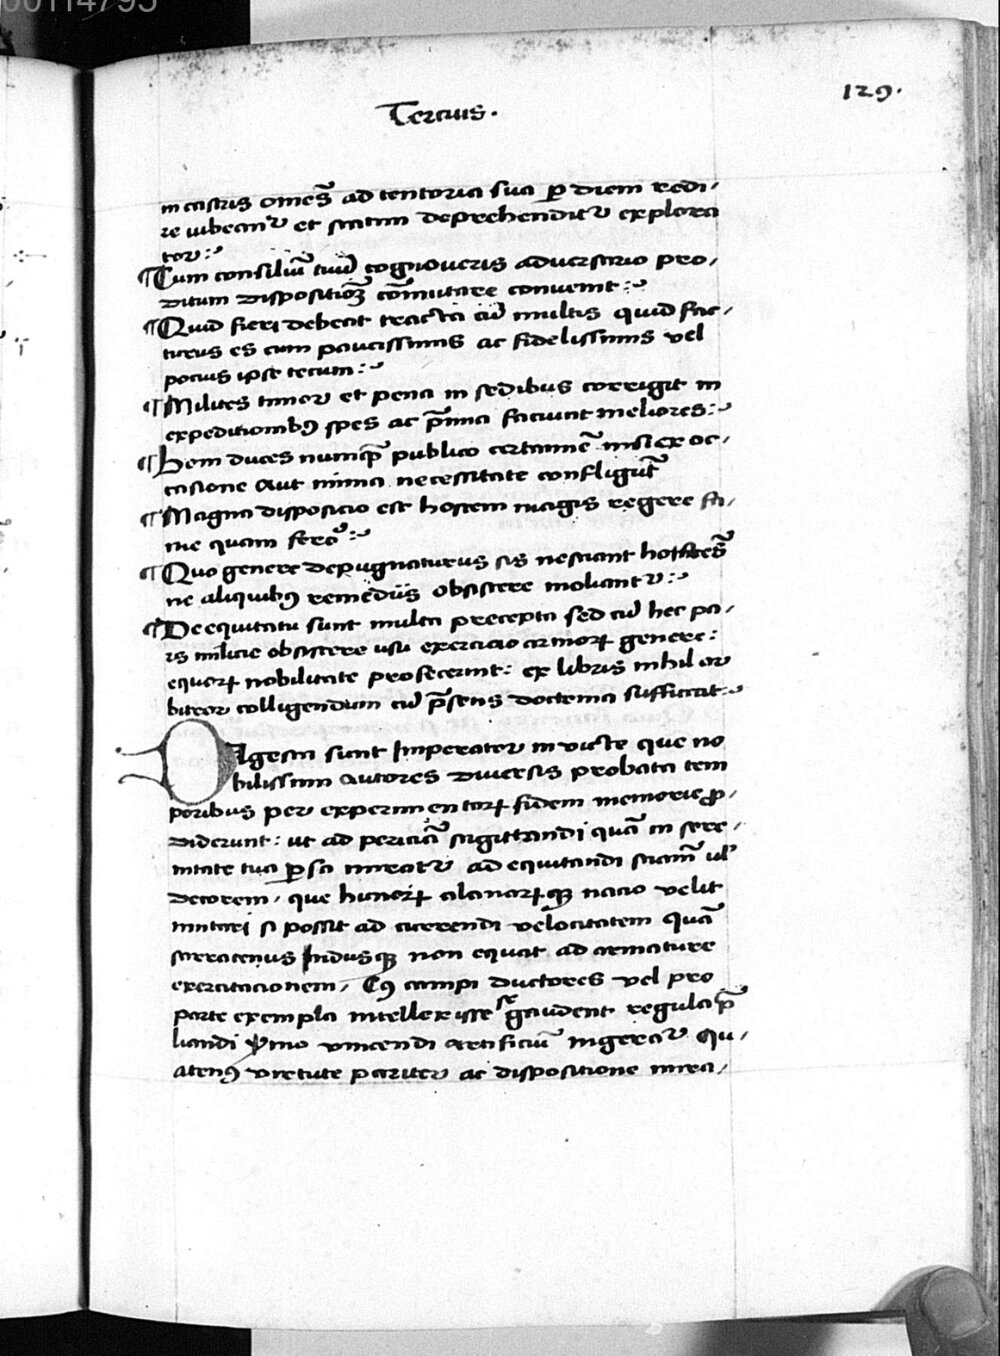 00114795
Tercius.
129.
in castris om̃es ad tentoria sua ꝑ diem redi/
re iubeant᷑ et statim deprehendit᷑ explora
tor:~
¶Cum consiliũ tuũ cognoueris aduersario pro/
ditum dispositiõꝫ cõmutare conuenit:~
¶Quid fieri debeat tracta cũ multis quid fac/
turus es cum paucissimis ac fidelissimis vel
pocius ipse tecum:~
¶Milites timor et pena in sedibus corrigit in
expeditionibꝰ spes ac p̃mia faciunt meliores:~
¶Boni duces numq̃ publico certamie᷑ nisi ex oc/
casione aut nimia necessitate confligũt
¶Magna disposicio est hostem magis regere fa/
me quam ferro:~
¶Quo genere depugnaturus sis nesciant hostes
ne aliquibꝰ remediis obsistere moliant᷑:~
¶De equitatu sunt multa precepta sed cũ hec pa/
rs milicie obsistere usu exercicio armoꝝ genere:
equoꝝ nobilitate profecerint: ex libris nihil ar
bitror colligendum cũ p̃sens doctrina sufficiat:~
Digesta sunt Imperator inuicte que no
bilissimi autores diuersis probata tem
poribus per experimentoꝝ fidem memorie ꝓ/
diderunt: ut ad periciã sagittandi quã in sere/
nitate tua ꝑsa mirat᷑ ad equitandi sciam̃ ul᷑
decorem, que hunoꝝ alanoꝝqꝫ nacio velit
imitari si possit ad currendi velocitatem quã
sarracenus Indusqꝫ non equat ad armature
exercitacionem, Cꝰ campi ductores vel pro
parte exempla intellexisse se gaudent regula p̃
liandi ỹmo vincendi artificiũ ingerat᷑ Qu/
atenꝰ virtute pariter ac dispositione mira/